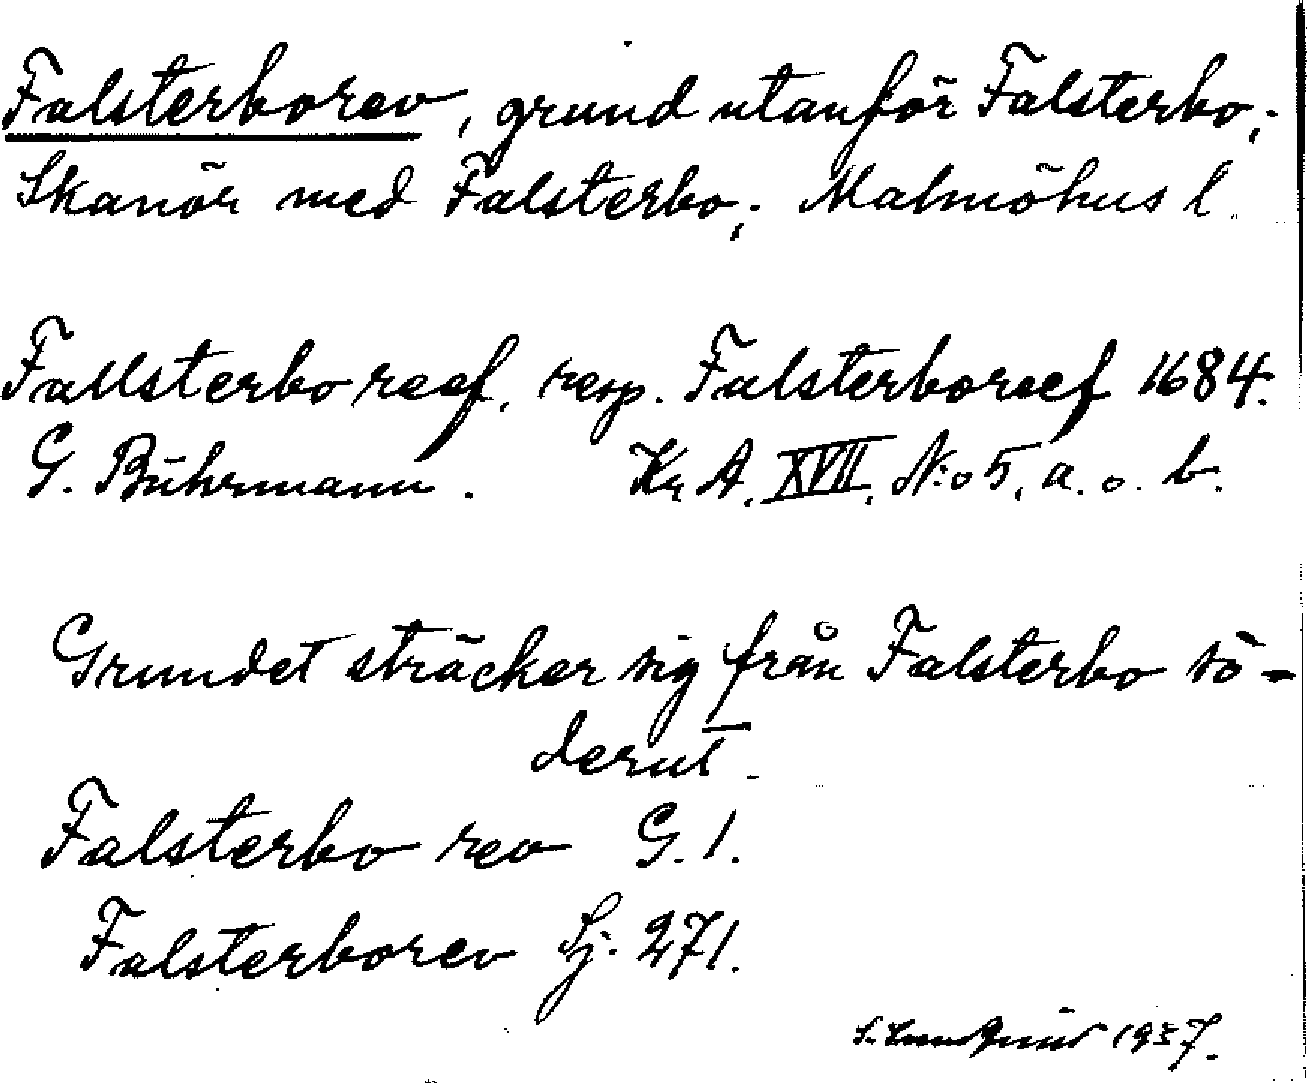 Falsterborev, grund utanför Falsterbo;
Skanör med Falsterbo; Malmöhus l.
Fallsterbo reef, resp. Falsterboreef 1684.
G. Bührmann. Kr A. XVII, N:o 5, a. o. b.
Grundet sträcker sig från Falsterbo sö-
derut.
Falsterbo rev G. 1.
Falsterborev Sj. 271.
1937.